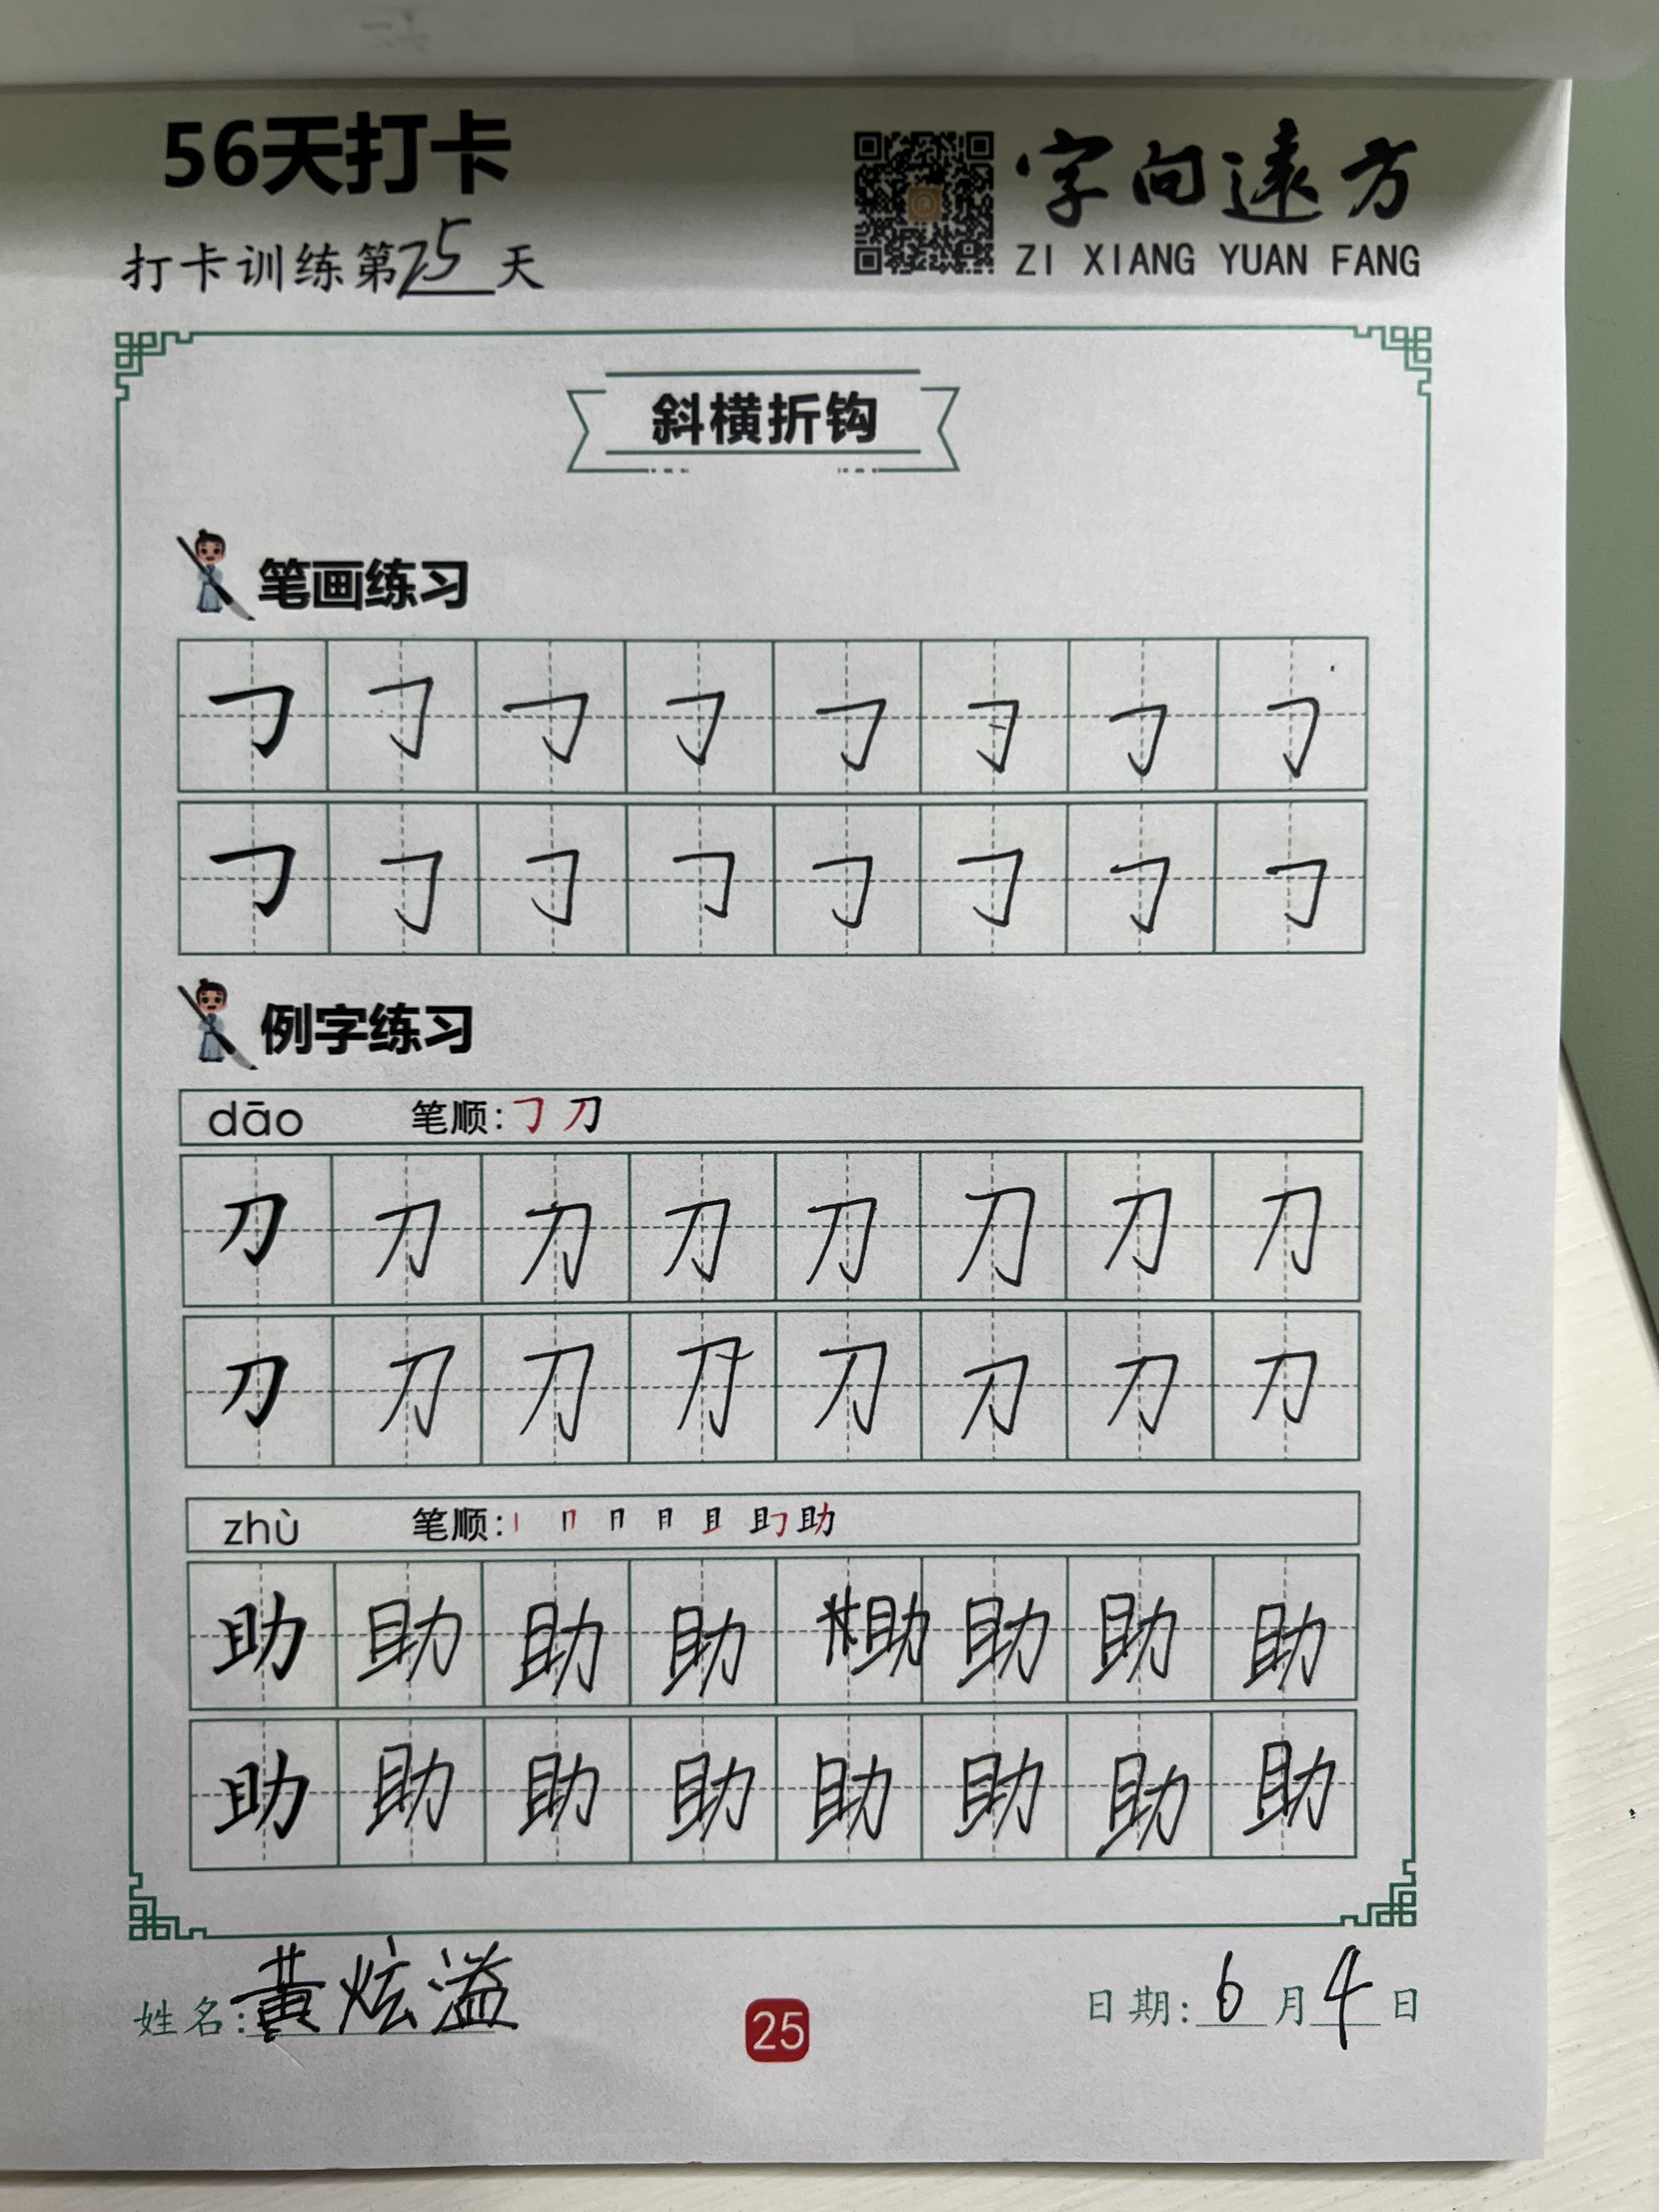 56天打卡
字向遠方
打卡训练第25天
ZI XIANG YUAN FANG
斜横折钩
笔画练习
㇆ ㇆ ㇆ ㇆ ㇆ ㇆ ㇆ ㇆
㇆ ㇆ ㇆ ㇆ ㇆ ㇆ ㇆ ㇆
例字练习
dāo 笔顺: ㇆ 刀
刀 刀 刀 刀 刀 刀 刀 刀
刀 刀 刀 刀 刀 刀 刀 刀
zhù 笔顺: 丨 冂 月 且 助
助 助 助 助 助 助 助 助
助 助 助 助 助 助 助 助
姓名: 黄炫溢
25
日期: 6月4日